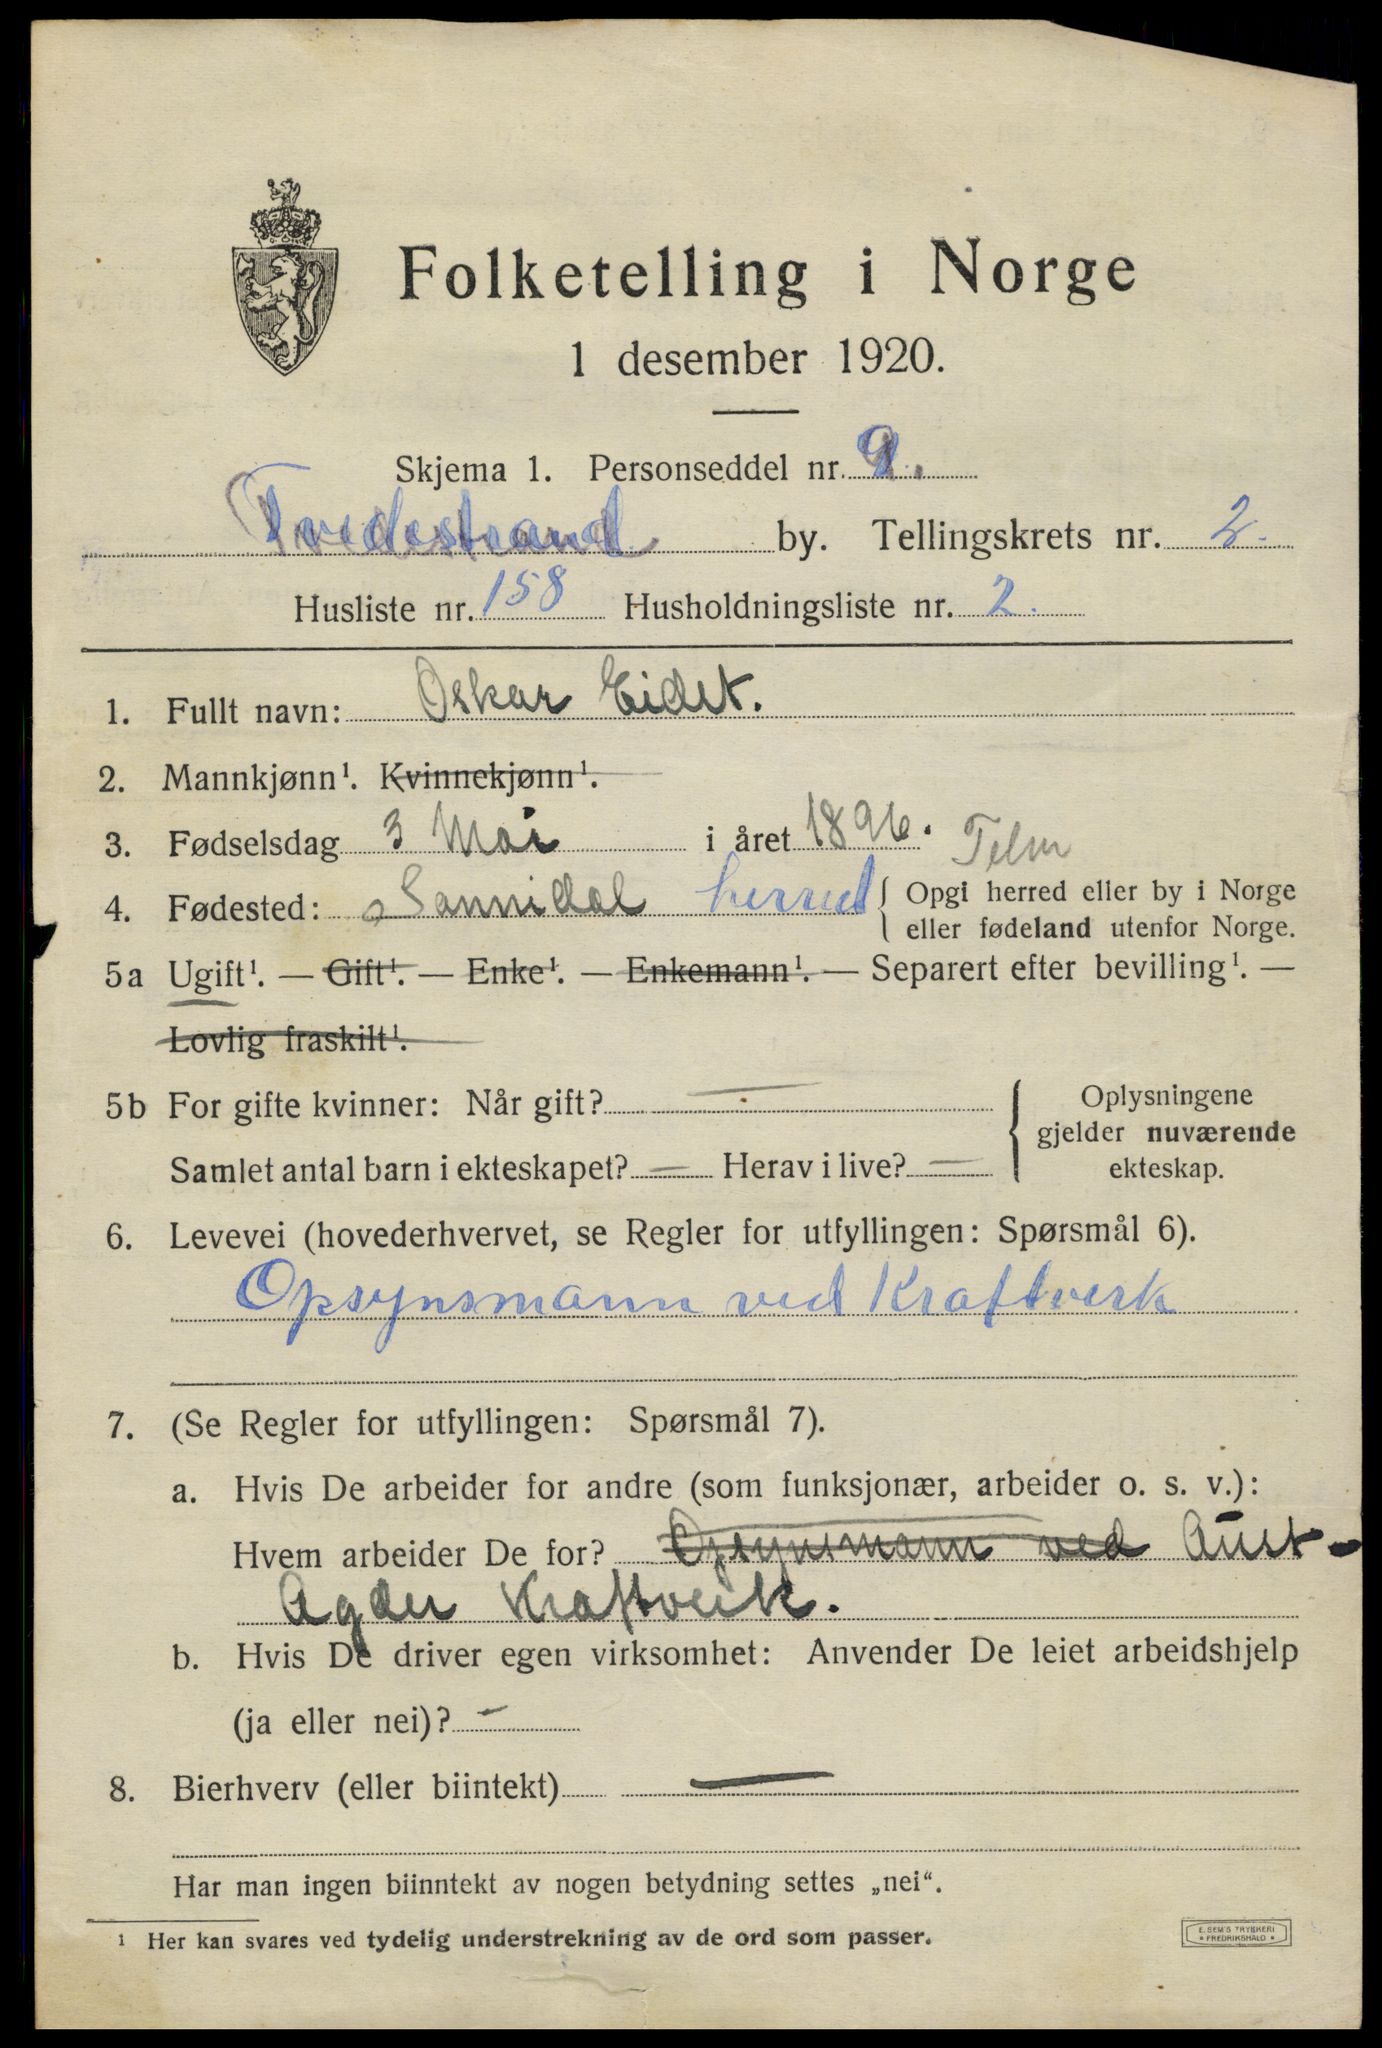 Folketelling i Norge
1 desember 1920.
Skjema 1. Personseddel nr. 9.
Tvedestrand by. Tellingskrets nr. 2.
Husliste nr. 158 Husholdningsliste nr. 2.
1. Fullt navn: Oskar Eidet.
2. Mannkjønn¹. Kvinnekjønn¹.
3. Fødselsdag 3 Mai i året 1896. Telm
4. Fødested: Sannidal herred { Opgi herred eller by i Norge
eller fødeland utenfor Norge.
5a Ugift¹. — Gift¹. — Enke¹. — Enkemann¹. — Separert efter bevilling¹. —
Lovlig fraskilt¹.
5b For gifte kvinner: Når gift? — { Oplysningene
gjelder nuværende
Samlet antal barn i ekteskapet? — Herav i live? — ekteskap.
6. Levevei (hovederhvervet, se Regler for utfyllingen: Spørsmål 6).
Opsynsmann ved Kraftverk
7. (Se Regler for utfyllingen: Spørsmål 7).
a. Hvis De arbeider for andre (som funksjonær, arbeider o. s. v.):
Hvem arbeider De for? Opsynsmann ved Aust-
Agder Kraftverk.
b. Hvis De driver egen virksomhet: Anvender De leiet arbeidshjelp
(ja eller nei)? –
8. Bierhverv (eller biintekt) —
Har man ingen biinntekt av nogen betydning settes „nei“.
¹ Her kan svares ved tydelig understrekning av de ord som passer.
E. SEM'S TRYKKERI
• FREDRIKSHALD •